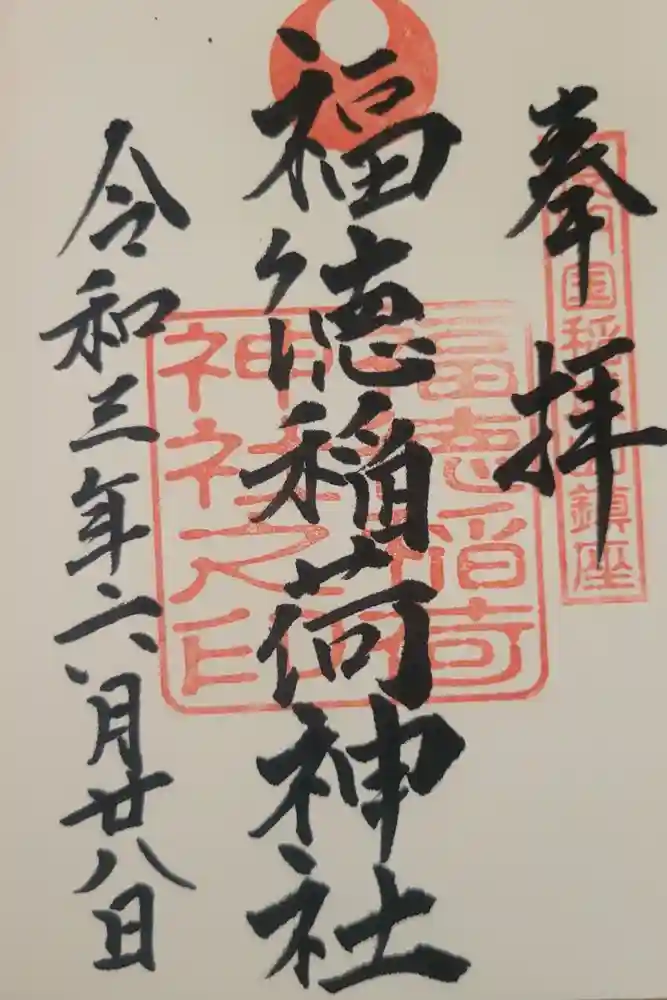 奉拝
国稲
鎮座
福徳稲荷神社
福徳稲荷
神社之印
令和三年六月廿八日